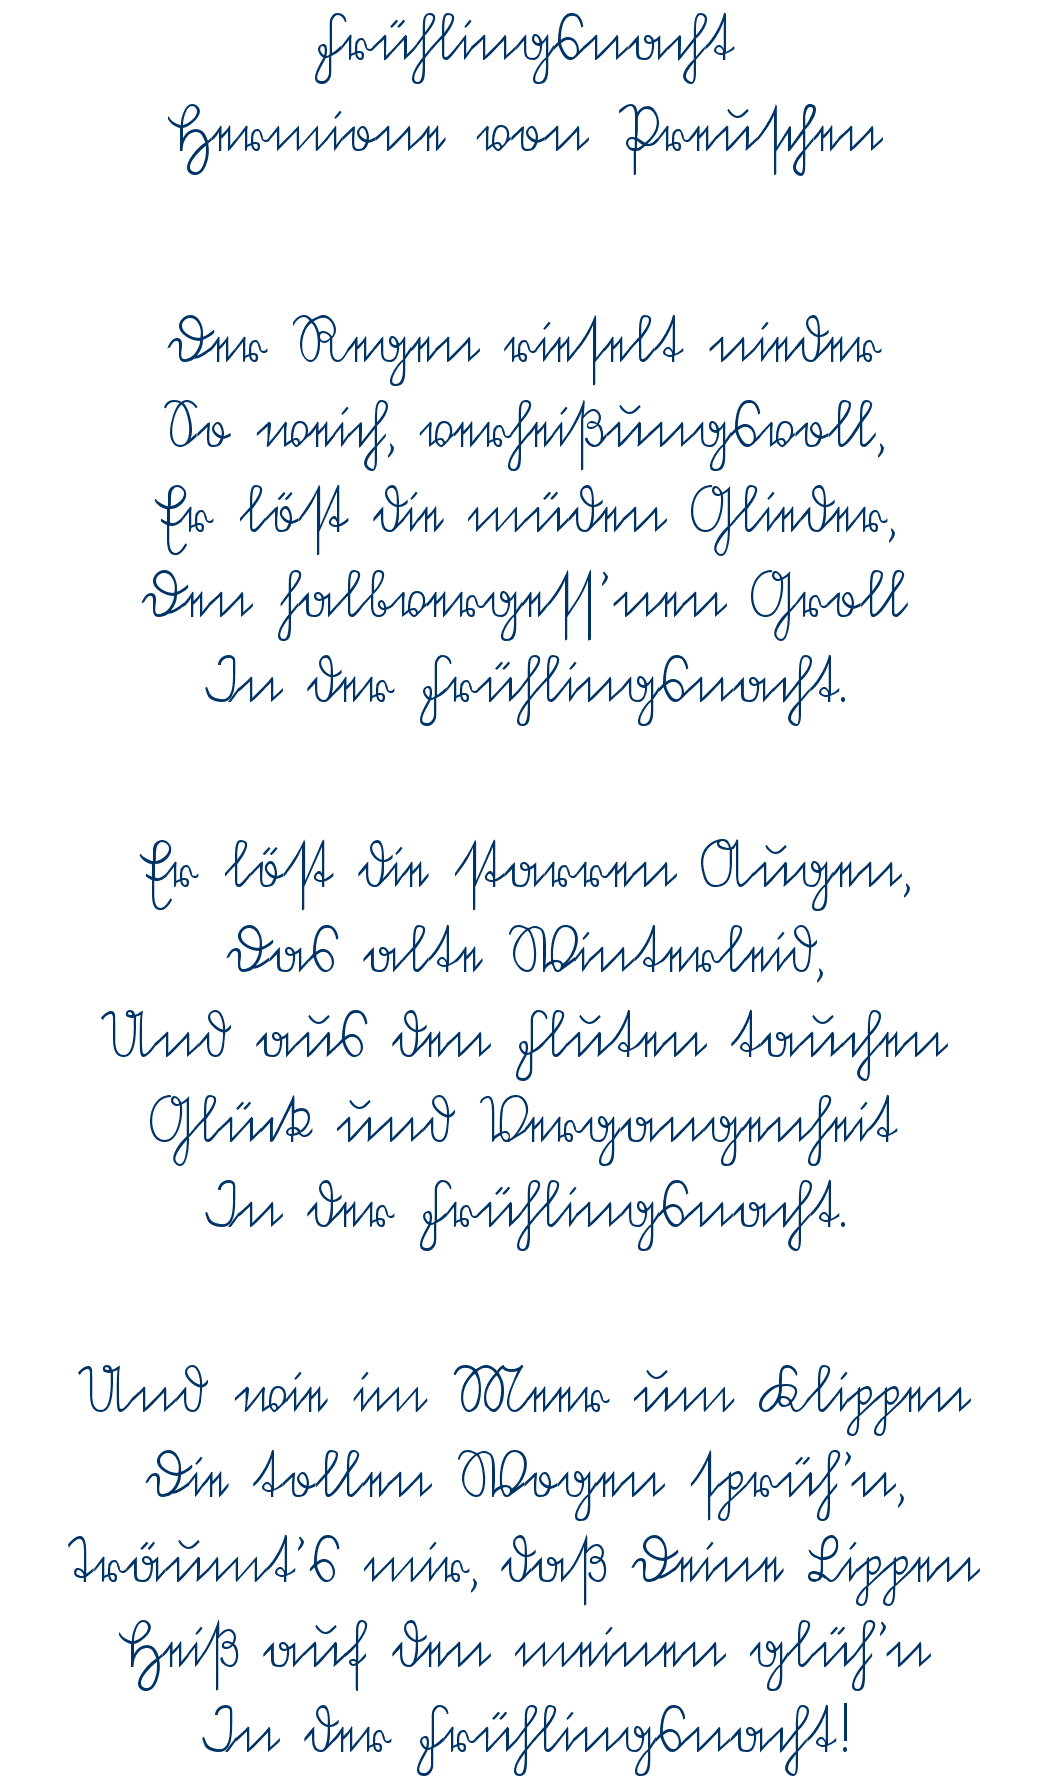 Frühlingsnacht
Hermione von Preuschen
Der Regen rieselt nieder
So weich, verheißungsvoll,
Er löst die müden Glieder,
Den halbvergess'nen Groll
In der Frühlingsnacht.
Er löst die starren Augen,
Das alte Winterleid,
Und aus den Fluten tauchen
Glück und Vergangenheit
In der Frühlingsnacht.
Und wie im Meer um Klippen
Die tollen Wogen sprüh'n,
Träumt's mir, daß Deine Lippen
Heiß auf den meinen glüh'n
In der Frühlingsnacht!